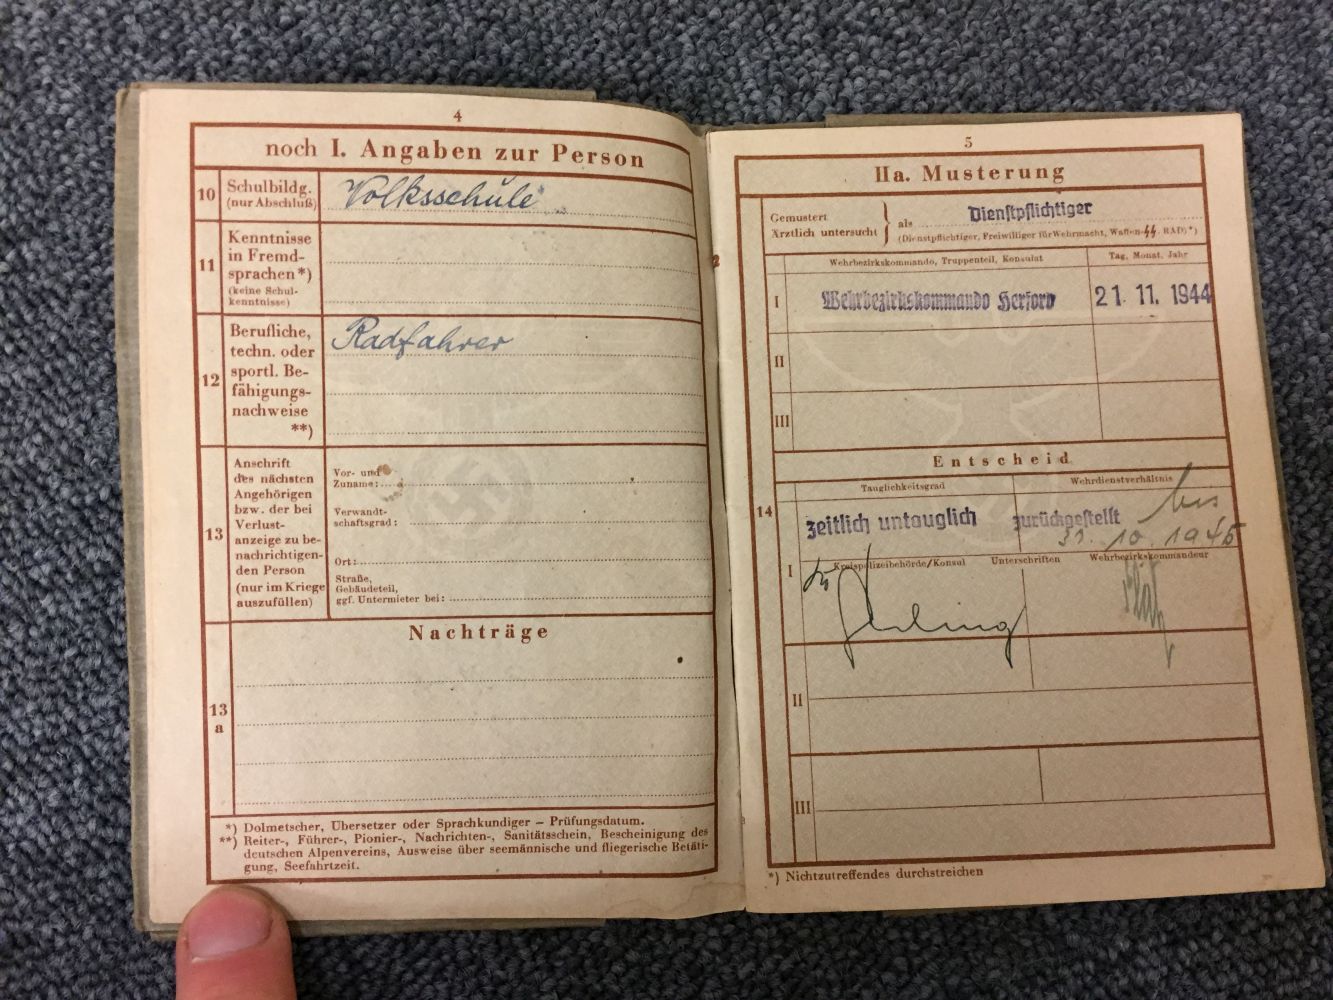 4
noch I. Angaben zur Person
10
Schulbildg.
(nur Abschluß)
Volksschule
11
Kenntnisse
in Fremd-
sprachen*)
(keine Schul-
kenntnisse)
12
Berufliche,
techn. oder
sportl. Be-
fähigungs-
nachweise
**)
Radfahrer
13
Anschrift
des nächsten
Angehörigen
bzw. der bei
Verlust-
anzeige zu be-
nachrichtigen-
den Person
(nur im Kriege
auszufüllen)
Vor- und
Zuname:
Verwandt-
schaftsgrad:
Ort:
Straße,
Gebäudeteil,
ggf. Untermieter bei:
Nachträge
13
a
*) Dolmetscher, Übersetzer oder Sprachkundiger – Prüfungsdatum.
**) Reiter-, Führer-, Pionier-, Nachrichten-, Sanitätsschein, Bescheinigung des
deutschen Alpenvereins, Ausweise über seemännische und fliegerische Betäti-
gung, Seefahrtzeit.
5
IIa. Musterung
Gemustert
Ärztlich untersucht
als Dienstpflichtiger
(Dienstpflichtiger, Freiwilliger für Wehrmacht, Waffen-SS, RAD)*)
Wehrbezirkskommando, Truppenteil, Konsulat
Tag, Monat, Jahr
I
Wehrbezirkskommando Herford
21. 11. 1944
II
III
Entscheid
14
Tauglichkeitsgrad
Wehrdienstverhältnis
zeitlich untauglich
zurückgestellt bis
31. 10. 1945
I
Kreispolizeibehörde/Konsul Unterschriften Wehrbezirkskommandeur
II
III
*) Nichtzutreffendes durchstreichen